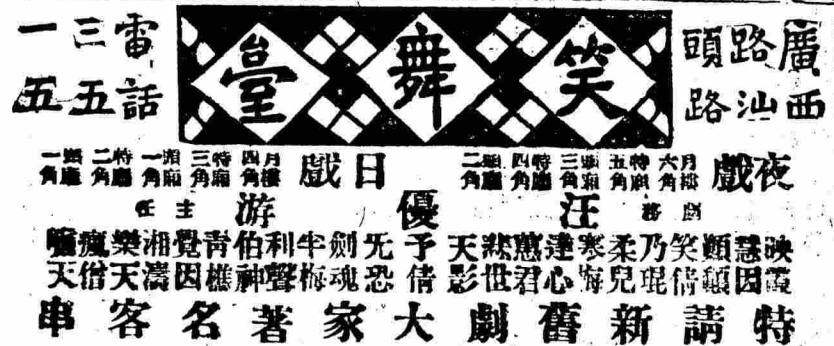 廣西路汕頭路
笑舞臺
電話三五一五
夜戲 月樓六角 特廂五角 頭廂三角 特廳四角 頭廳二角
日戲 月樓四角 特廂三角 頭廂一角 特廳二角 頭廳一角
劇務 汪優游 主任
映霞 慧因 笑倩 乃琨 柔兒 寒梅 達心 蕙君 悲世 天影 予倩 旡恐 劍魂 半梅 利聲 伯神 青樵 覺因 湘濤 樂天 癡僧 嘯天
特請新舊劇大家著名客串